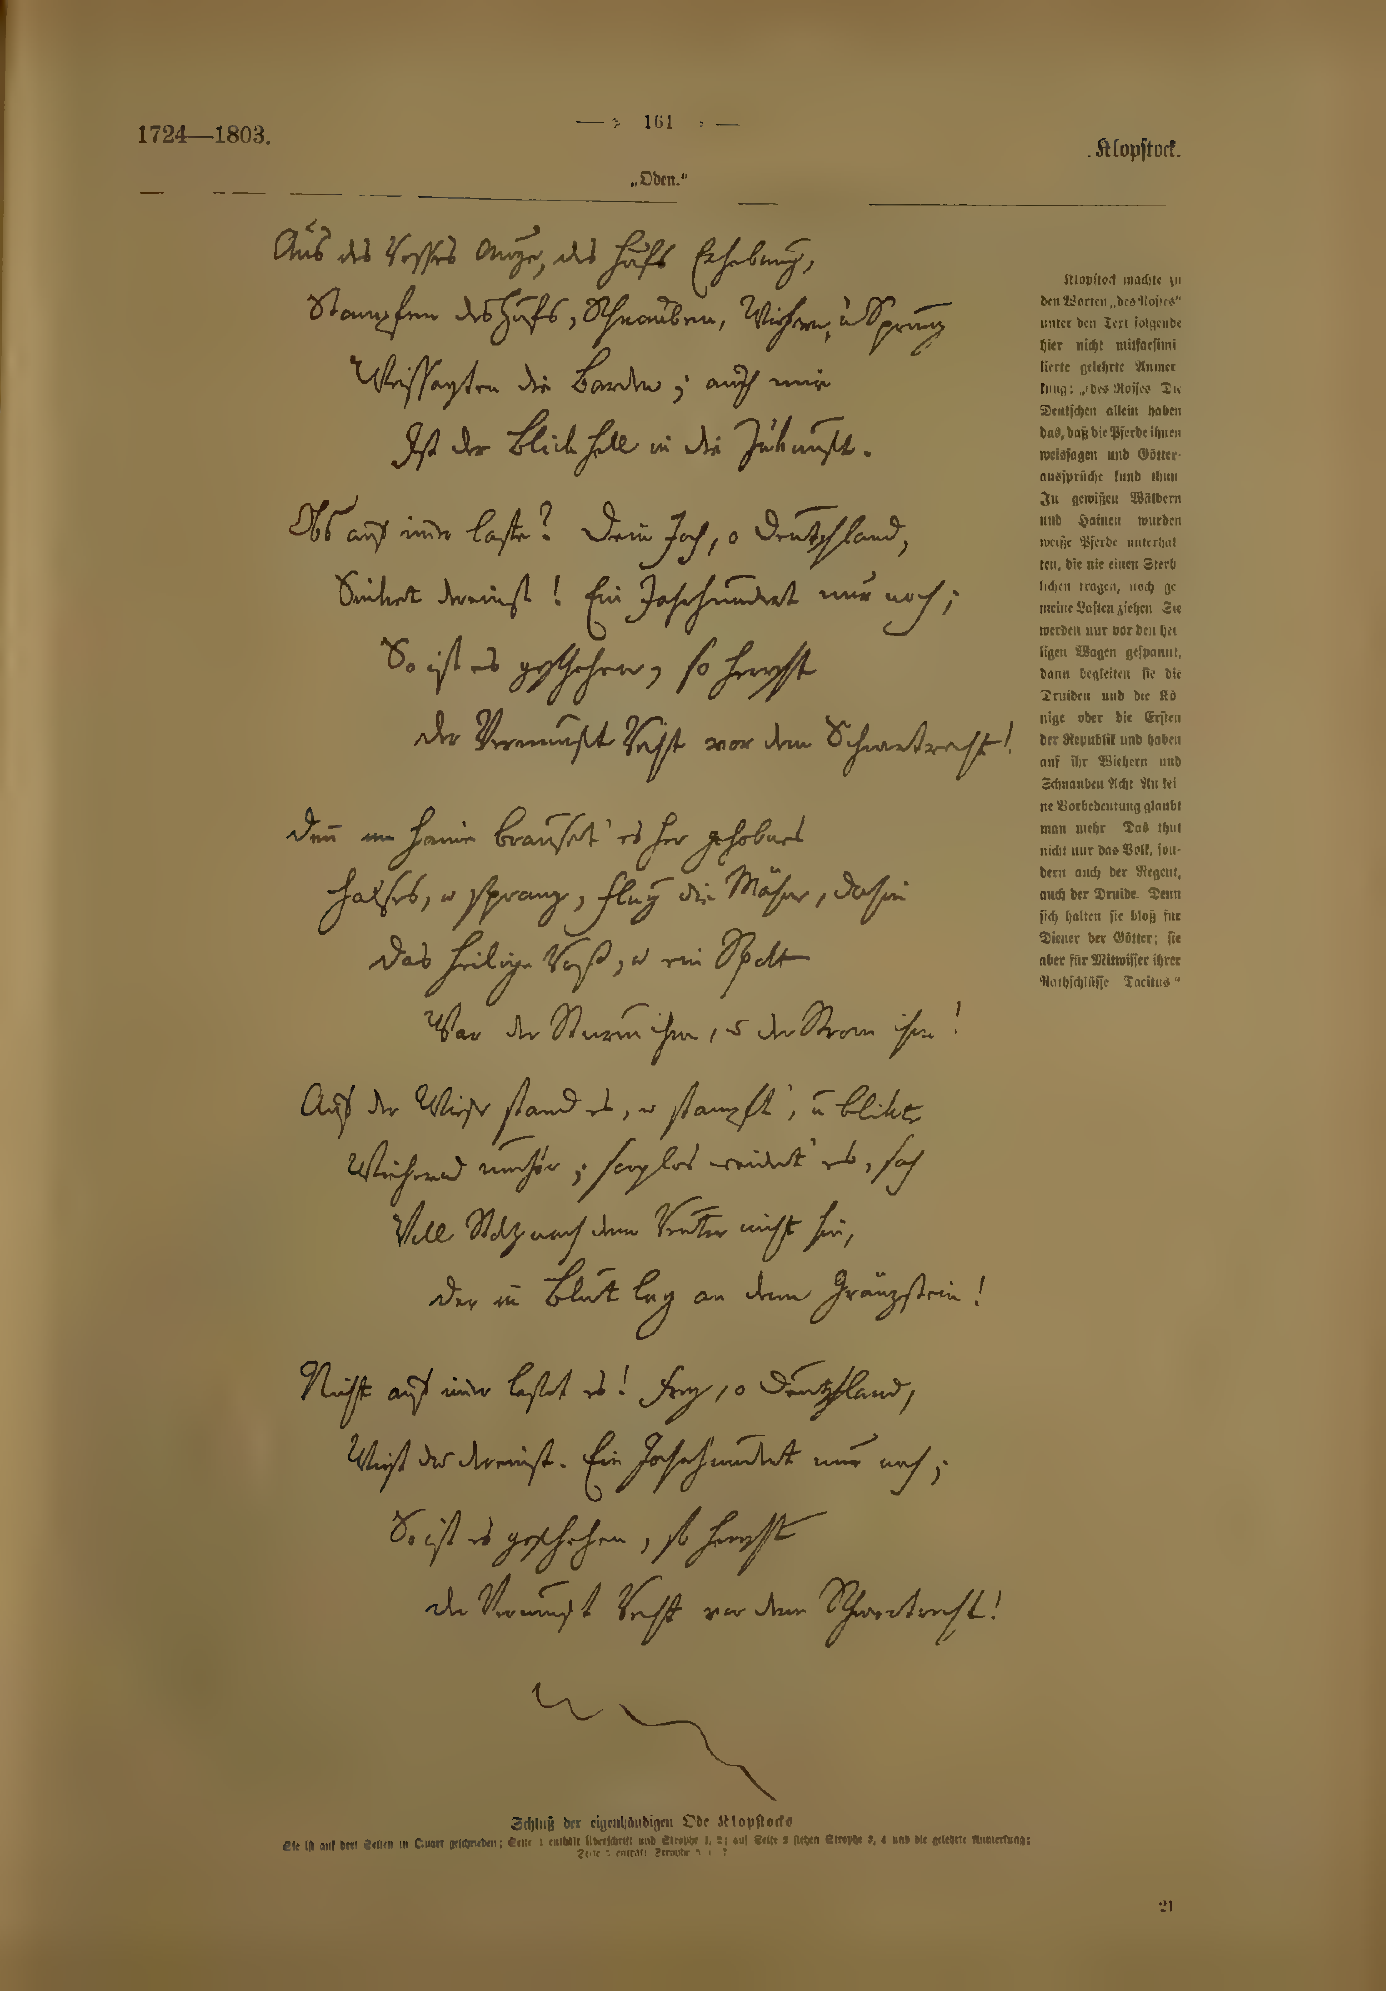 1724—1803.
— 161 —
Klopſtock.
„Oden.“
Aus des Roſſes Auge, des Hufs Erhebung,
Stampfen des Hufs, Schnauben, Wiehern, u Sprung
Weiſſagten die Barden; auch mir
Iſt der Blick hell in die Zukunft.
Obs auf im̄er laſte? Dein Joch, o Deutſchland,
Sinket dereinſt! Ein Jahrhundert nur noch;
So iſt es geſchehen, ſo herſcht
der Vernunft Recht vor dem Schwertrecht!
Den̄ im Haine brauſet' es her gehobnes
Halſes, u ſprang, Flug die Mähne, dahin
Das heilige Roß, u ein Spott
War der Sturm ihm, u der Strom ihm!
Auf der Wieſe ſtand es, u ſtampft', u blikte
Wiehernd umher; ſorglos weidet' es, ſah
Voll Stolz nach dem Reuter nicht hin,
Der im Blut lag an dem Gränzſtein!
Nicht auf im̄er laſtet es! Frey, o Deutſchland,
Wirſt du dereinſt. Ein Jahrhundert nur noch;
So iſt es geſchehen, ſo herſcht
der Vernunft Recht vor dem Schwertrecht!
Klopſtock machte zu
den Worten „des Roſſes“
unter den Text folgende
hier nicht mitfacſimi
lierte gelehrte Anmer
kung: „des Roſſes Die
Deutſchen allein haben
das, daß die Pferde ihnen
weisſagen und Götter-
ausſprüche kund thun
In gewißen Wäldern
und Hainen wurden
weiße Pferde unterhal
ten, die nie einen Sterb
lichen tragen, noch ge
meine Laſten ziehen Sie
werden nur vor den hei
ligen Wagen geſpannt,
dann begleiten ſie die
Druiden und die Kö
nige oder die Erſten
der Republik und haben
auf ihr Wiehern und
Schnauben Acht An kei
ne Vorbedeutung glaubt
man mehr Das thut
nicht nur das Volk, ſon-
dern auch der Regent,
auch der Druide. Denn
ſich halten ſie bloß für
Diener der Götter; ſie
aber für Mitwiſſer ihrer
Rathſchlüſſe Tacitus“
Schluß der eigenhändigen Ode Klopſtocks
Sie iſt auf drei Seiten in Quart geſchrieben; Seite 1 enthält Überſchrift und Strophe 1, 2; auf Seite 2 ſtehen Strophe 3, 4 und die gelehrte Anmerkung;
Seite 3 enthält Strophe
21